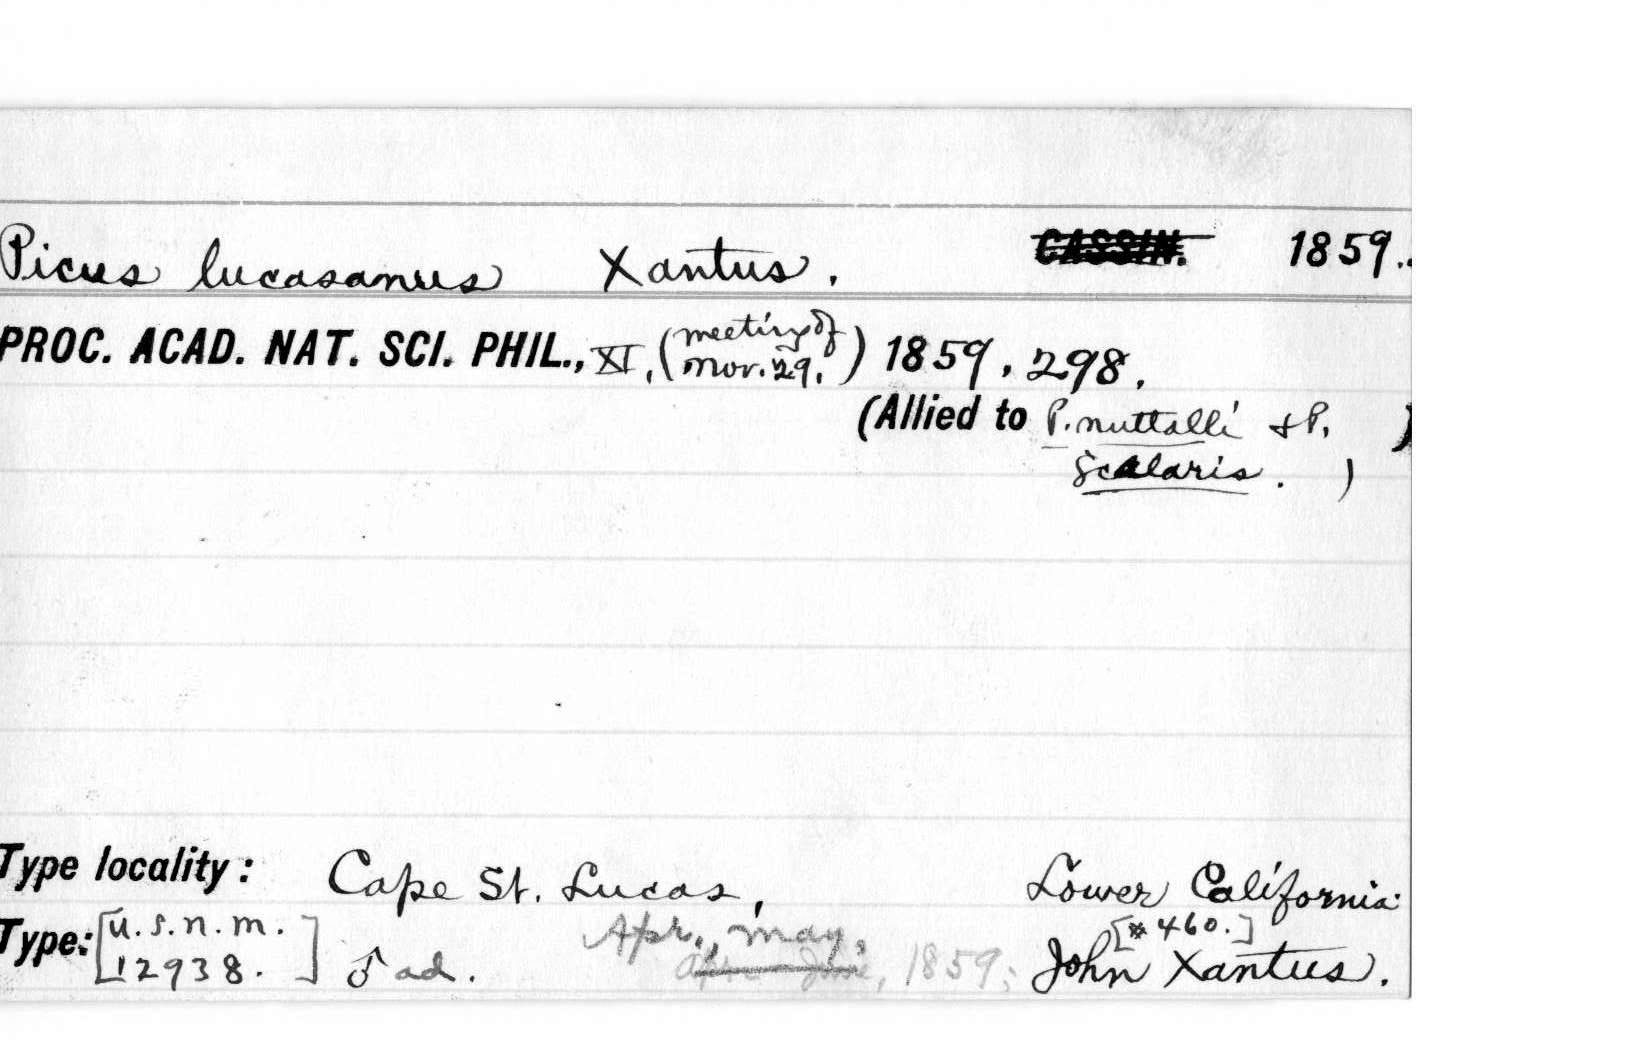 Picus lucasanus Xantus. CASSIN. 1859.
PROC. ACAD. NAT. SCI. PHIL., XI, (meeting of Nov. 29,) 1859, 298.
(Allied to P. nuttalli & P. )
scalaris. )
Type locality: Cape St. Lucas, Lower California
Type: [U.S.N.M. 12938.] ♂ ad. Apr., May, 1859; [#460.] John Xantus.